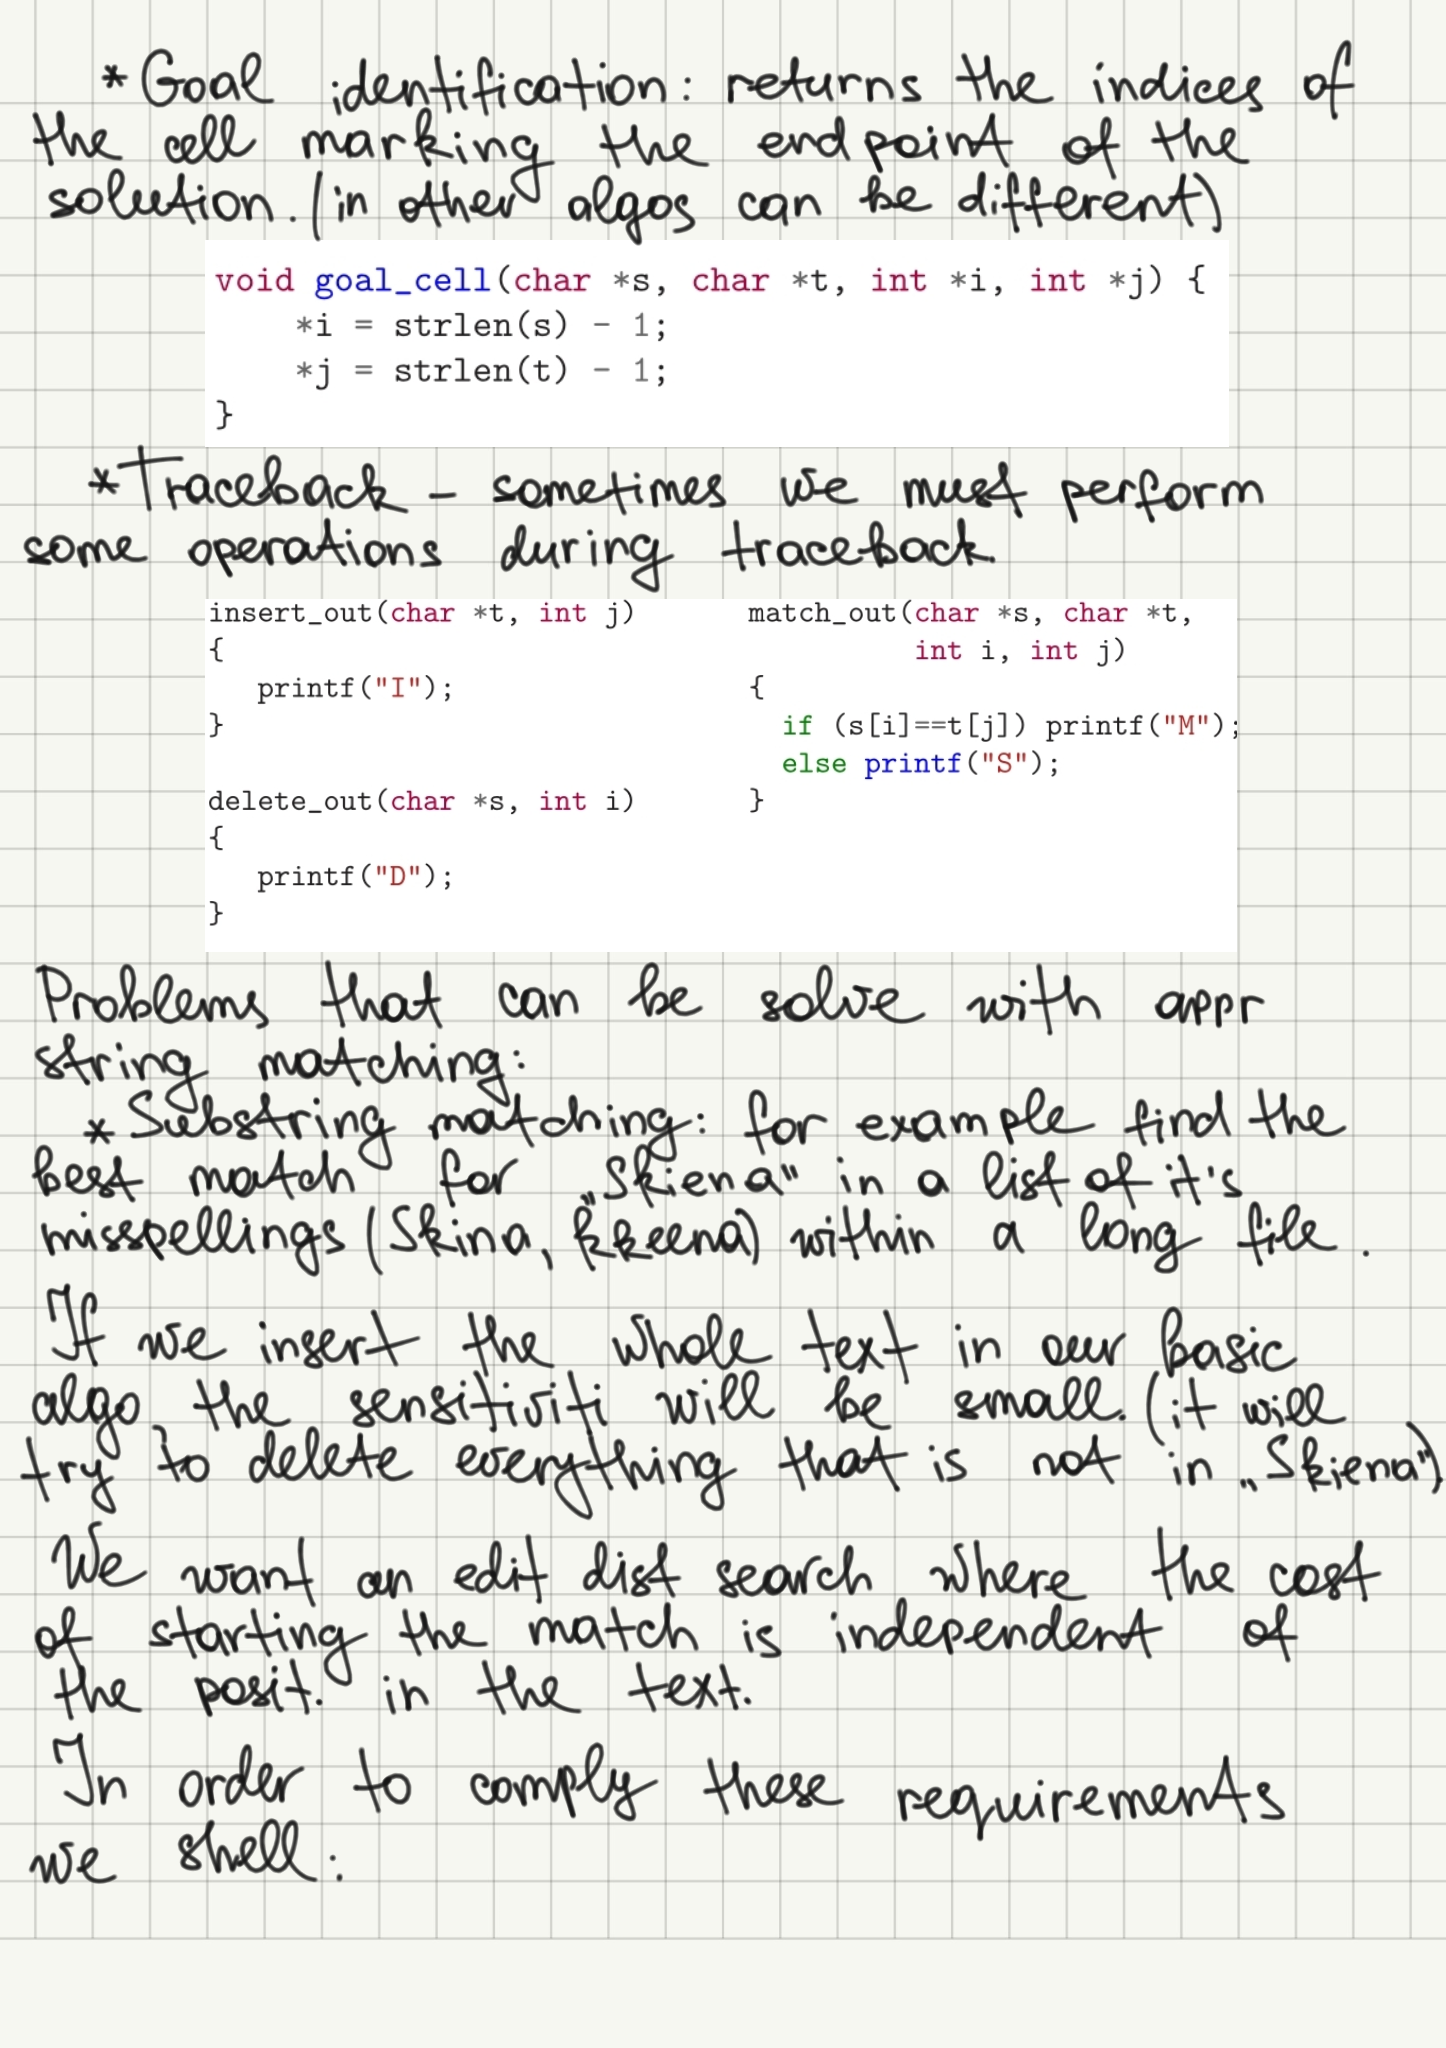 *Goal identification: returns the indices of
the cell marking the endpoint of the
solution. (in other algos can be different)
void goal_cell(char *s, char *t, int *i, int *j) {
*i = strlen(s) - 1;
*j = strlen(t) - 1;
}
*Traceback – sometimes we must perform
some operations during traceback.
insert_out(char *t, int j)
{
printf("I");
}
delete_out(char *s, int i)
{
printf("D");
}
match_out(char *s, char *t,
int i, int j)
{
if (s[i]==t[j]) printf("M");
else printf("S");
}
Problems that can be solve with appr
string matching:
* Substring matching: for example find the
best match for „Skiena" in a list of it's
misspellings (Skina, kkeena) within a long file.
If we insert the whole text in our basic
algo, the sensitiviti will be small. (it will
try to delete everything that is not in „Skiena")
We want an edit dist search where the cost
of starting the match is independent of
the posit. in the text.
In order to comply these requirements
we shell: